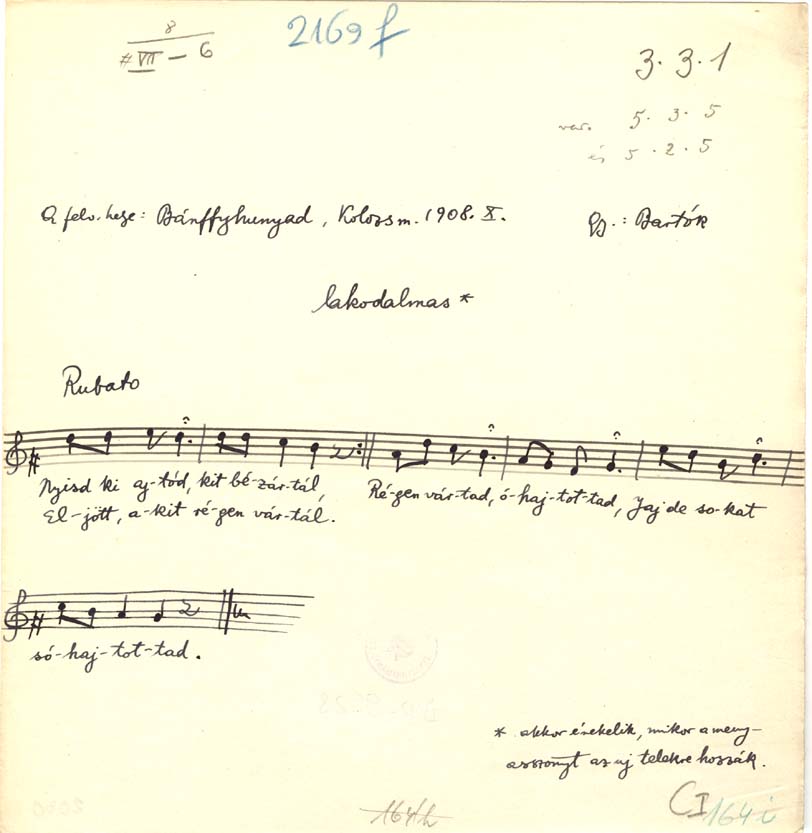 8
#VII - 6
2169 f
3. 3. 1
var. 5. 3. 5
és 5. 2. 5
A felv. helye: Bánffyhunyad, Kolozsm. 1908. X. Gy.: Bartók
lakodalmas *
Rubato
Nyisd ki aj-tód, kit bé-zár-tál, Ré-gen vár-tad, ó-haj-tot-tad, Jaj de so-kat
El-jött, a-kit ré-gen vár-tál.
só-haj-tot-tad.
* akkor éneklik, mikor a meny-
asszonyt az uj telekre hozzák.
164h
CI 164i